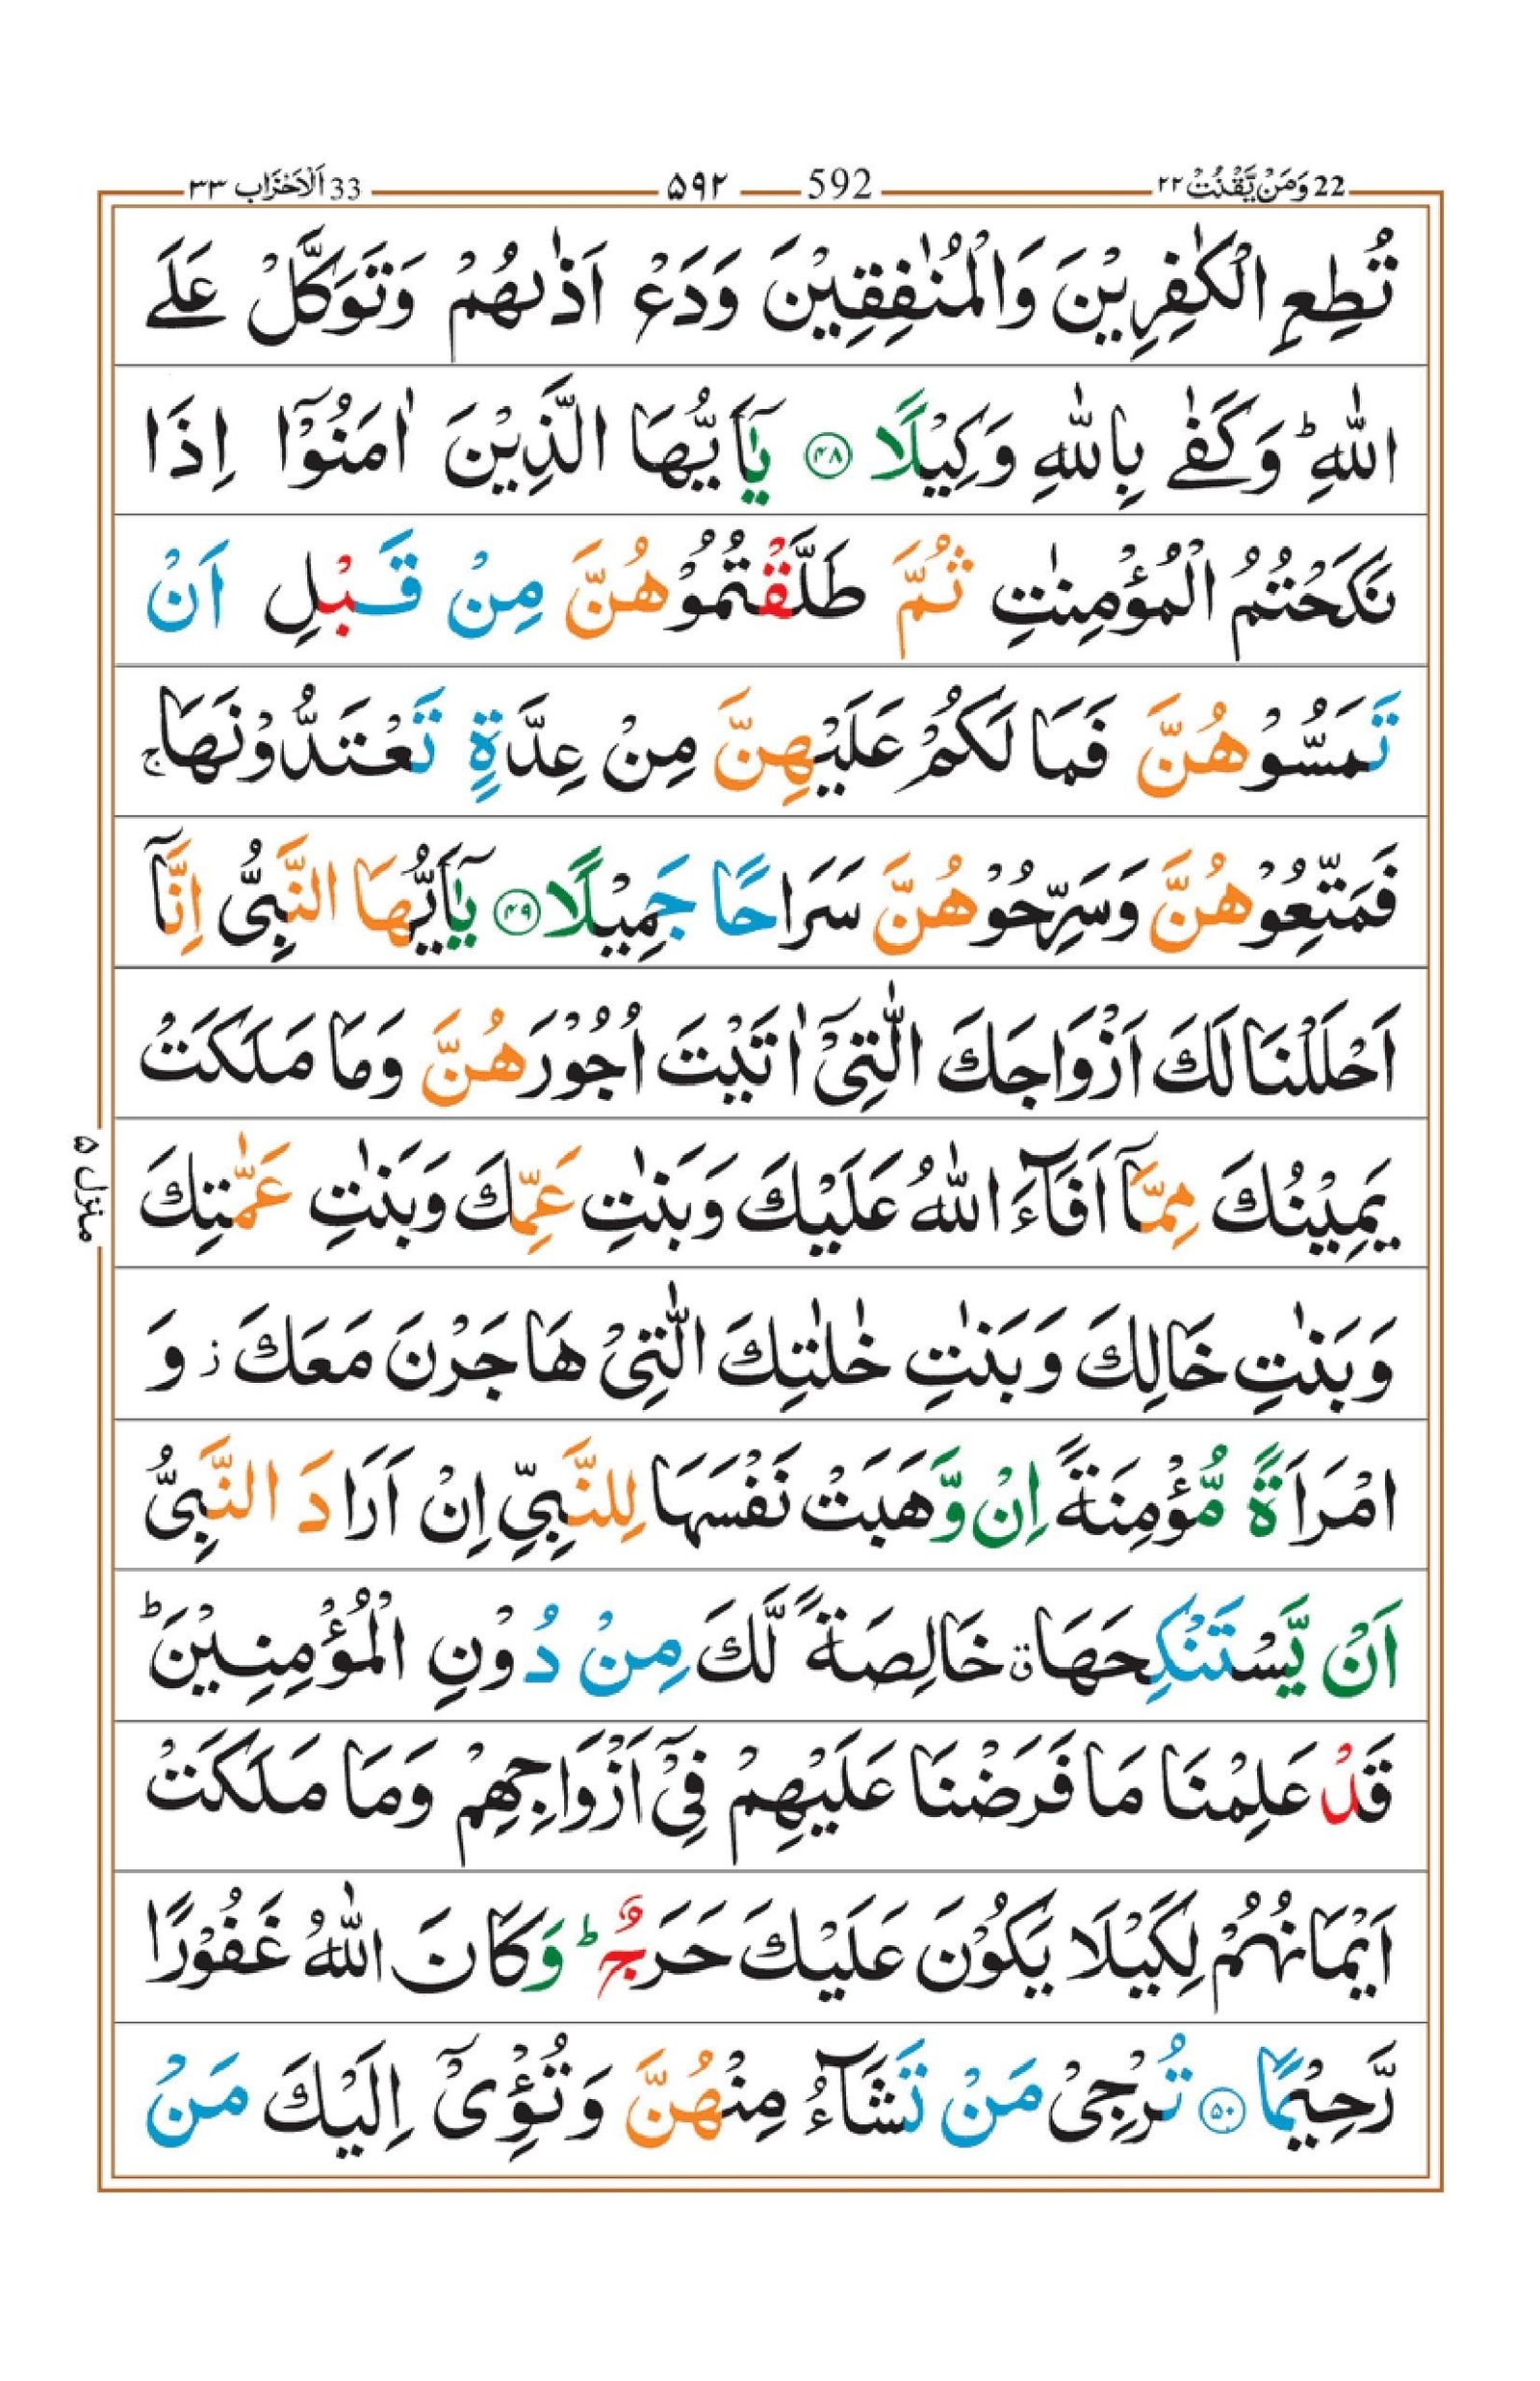 22 وَمَنْ يَّقْنُتْ ٢٢
592 ۵۹۲
33 اَلْاَحْزَاب ٣٣
تُطِعِ الْكٰفِرِيْنَ وَالْمُنٰفِقِيْنَ وَدَعْ اَذٰىهُمْ وَتَوَكَّلْ عَلَے
اللّٰهِ ؕ وَكَفٰے بِاللّٰهِ وَكِيْلًا ۴۸ يٰۤاَيُّهَا الَّذِيْنَ اٰمَنُوْۤا اِذَا
نَكَحْتُمُ الْمُؤْمِنٰتِ ثُمَّ طَلَّقْتُمُوْهُنَّ مِنْ قَبْلِ اَنْ
تَمَسُّوْهُنَّ فَمَا لَكُمْ عَلَيْهِنَّ مِنْ عِدَّةٍ تَعْتَدُّوْنَهَا ۚ
فَمَتِّعُوْهُنَّ وَسَرِّحُوْهُنَّ سَرَاحًا جَمِيْلًا ۴۹ يٰۤاَيُّهَا النَّبِىُّ اِنَّاۤ
اَحْلَلْنَا لَكَ اَزْوَاجَكَ الّٰتِىْۤ اٰتَيْتَ اُجُوْرَهُنَّ وَمَا مَلَكَتْ
يَمِيْنُكَ مِمَّاۤ اَفَآءَ اللّٰهُ عَلَيْكَ وَبَنٰتِ عَمِّكَ وَبَنٰتِ عَمّٰتِكَ
وَبَنٰتِ خَالِكَ وَبَنٰتِ خٰلٰتِكَ الّٰتِىْ هَاجَرْنَ مَعَكَ ز وَ
امْرَاَةً مُّؤْمِنَةً اِنْ وَّهَبَتْ نَفْسَهَا لِلنَّبِىِّ اِنْ اَرَادَ النَّبِىُّ
اَنْ يَّسْتَنْكِحَهَا ق خَالِصَةً لَّكَ مِنْ دُوْنِ الْمُؤْمِنِيْنَ ؕ
قَدْ عَلِمْنَا مَا فَرَضْنَا عَلَيْهِمْ فِىْۤ اَزْوَاجِهِمْ وَمَا مَلَكَتْ
اَيْمَانُهُمْ لِكَيْلَا يَكُوْنَ عَلَيْكَ حَرَجٌ ؕ وَكَانَ اللّٰهُ غَفُوْرًا
رَّحِيْمًا ۵۰ تُرْجِىْ مَنْ تَشَآءُ مِنْهُنَّ وَتُؤْىِٕۤ اِلَيْكَ مَنْ
منزل ۵